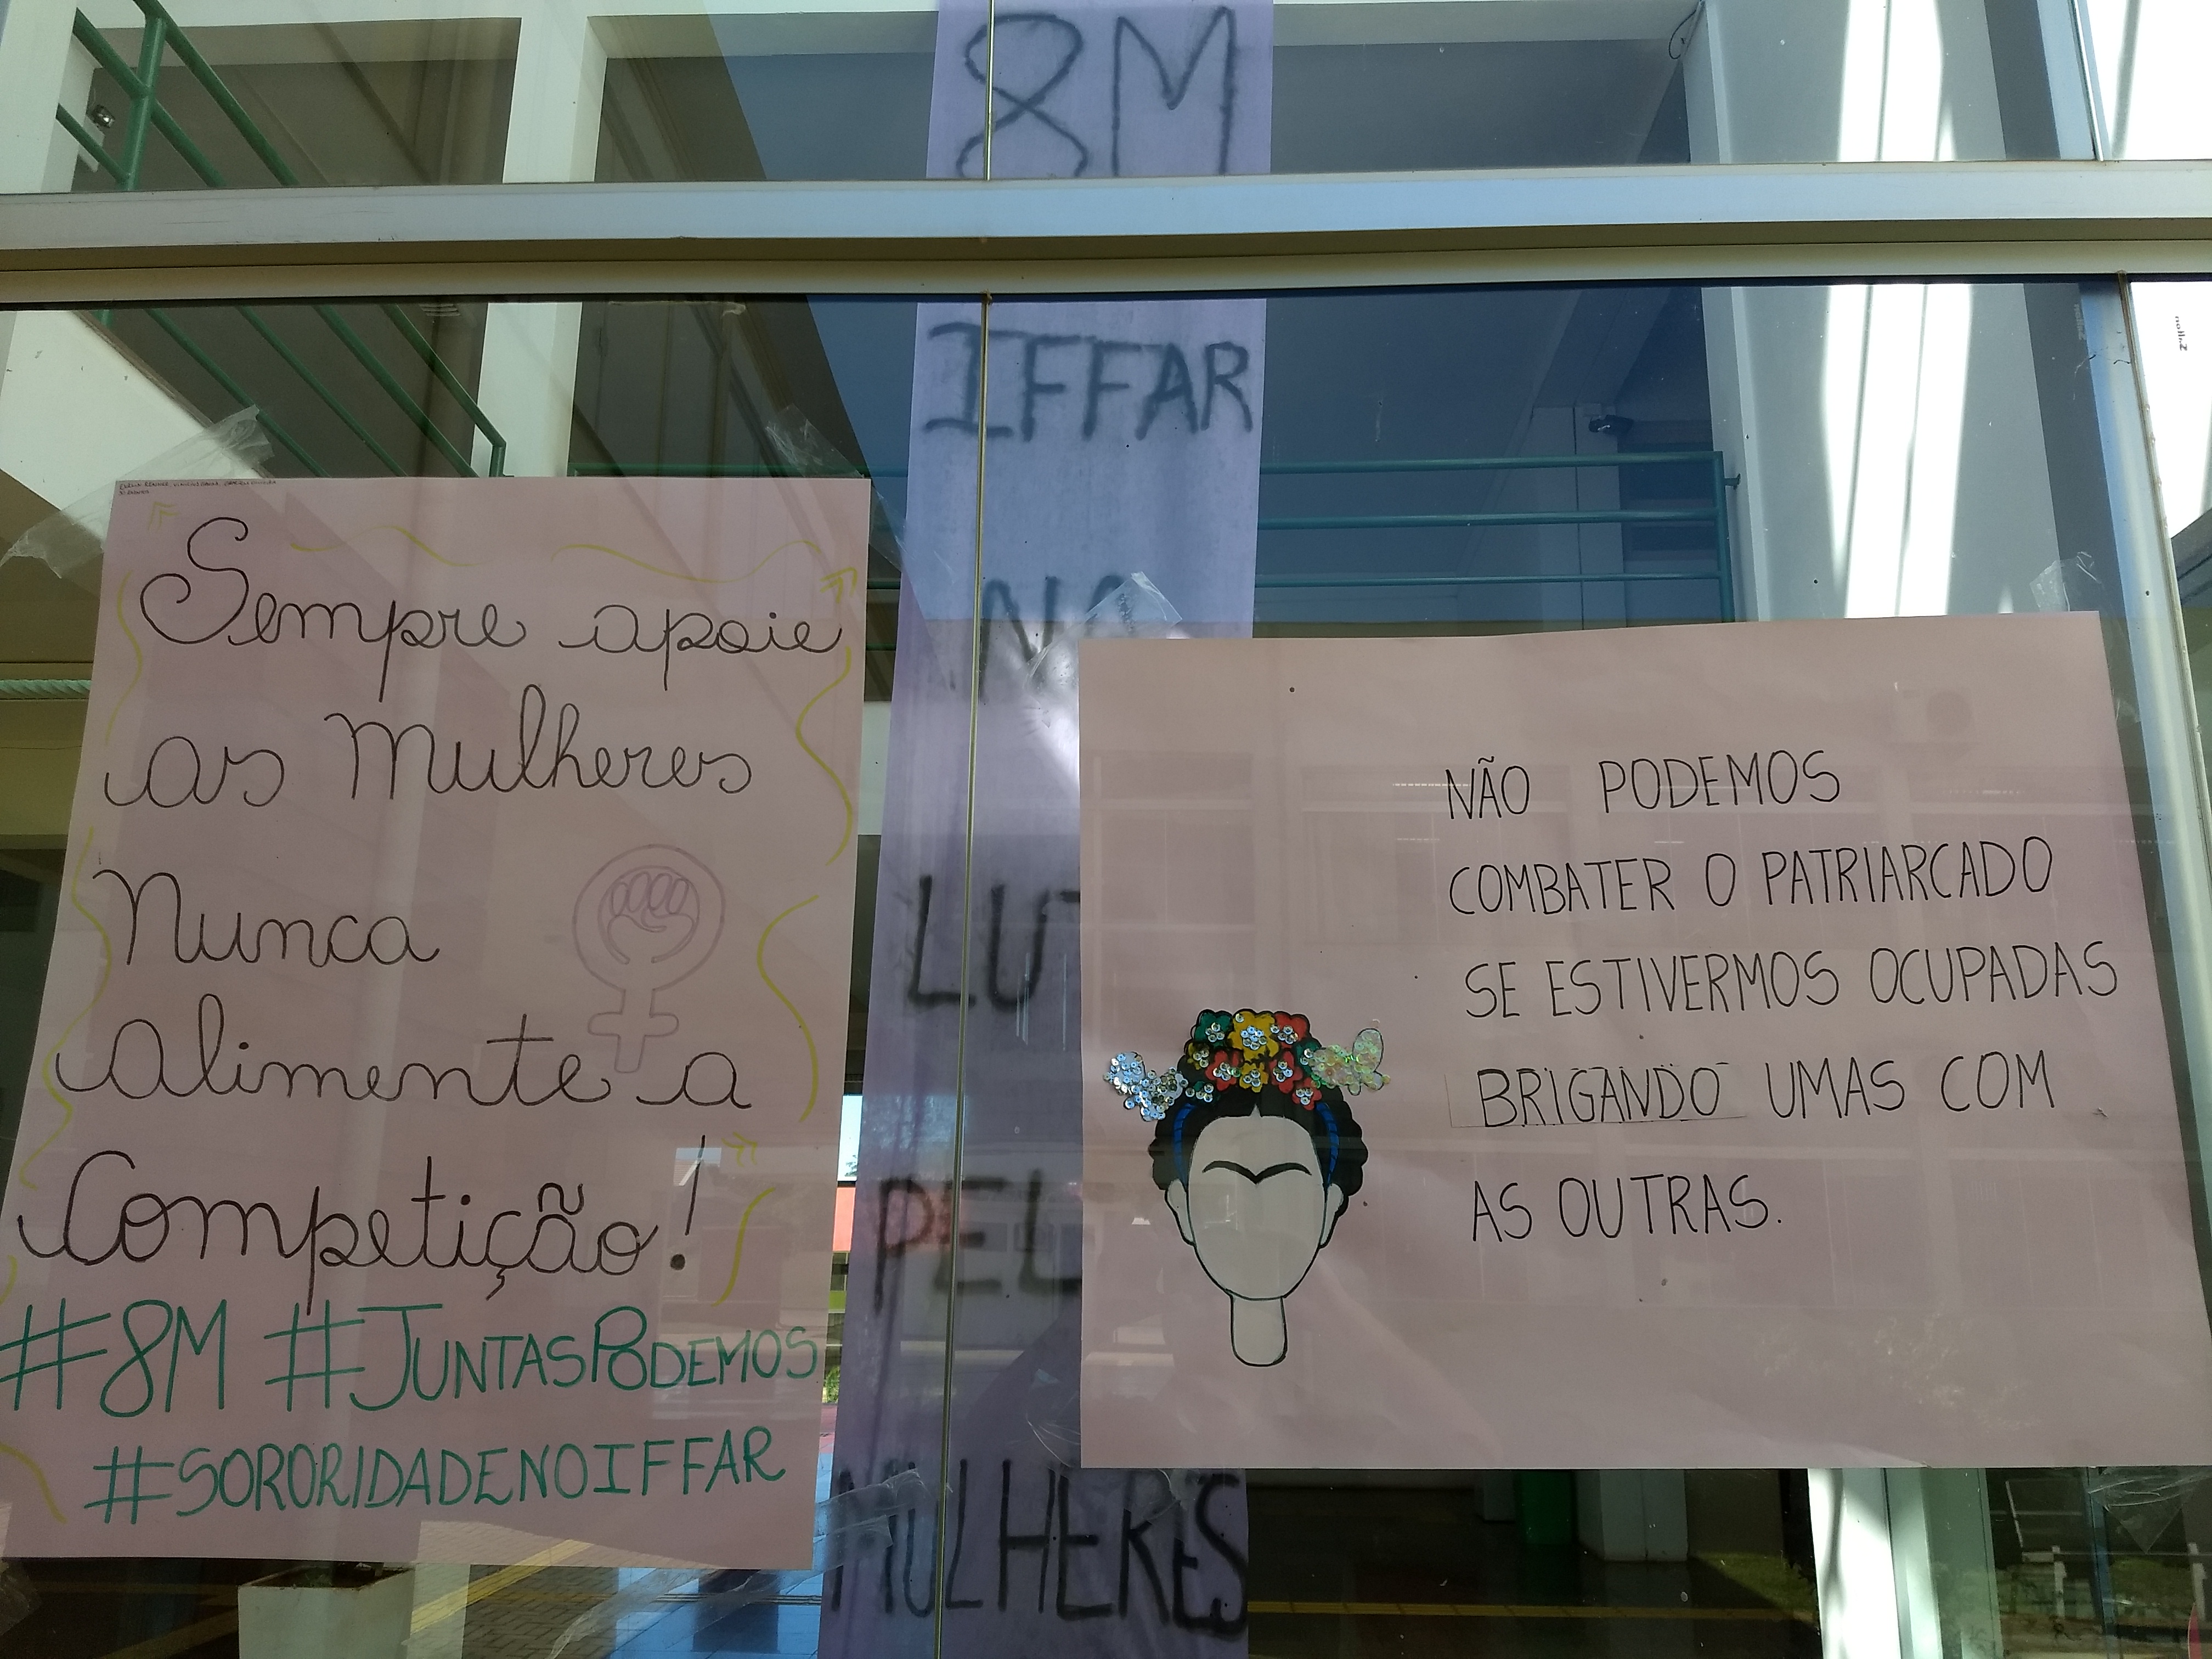 8M
IFFAR
NA
LUT
PEL
MULHERES
Sempre apoie
as Mulheres
Nunca
alimente a
Competição!
#8M #JUNTASPODEMOS
#SORORIDADENOIFFAR
NÃO PODEMOS
COMBATER O PATRIARCADO
SE ESTIVERMOS OCUPADAS
BRIGANDO UMAS COM
AS OUTRAS.